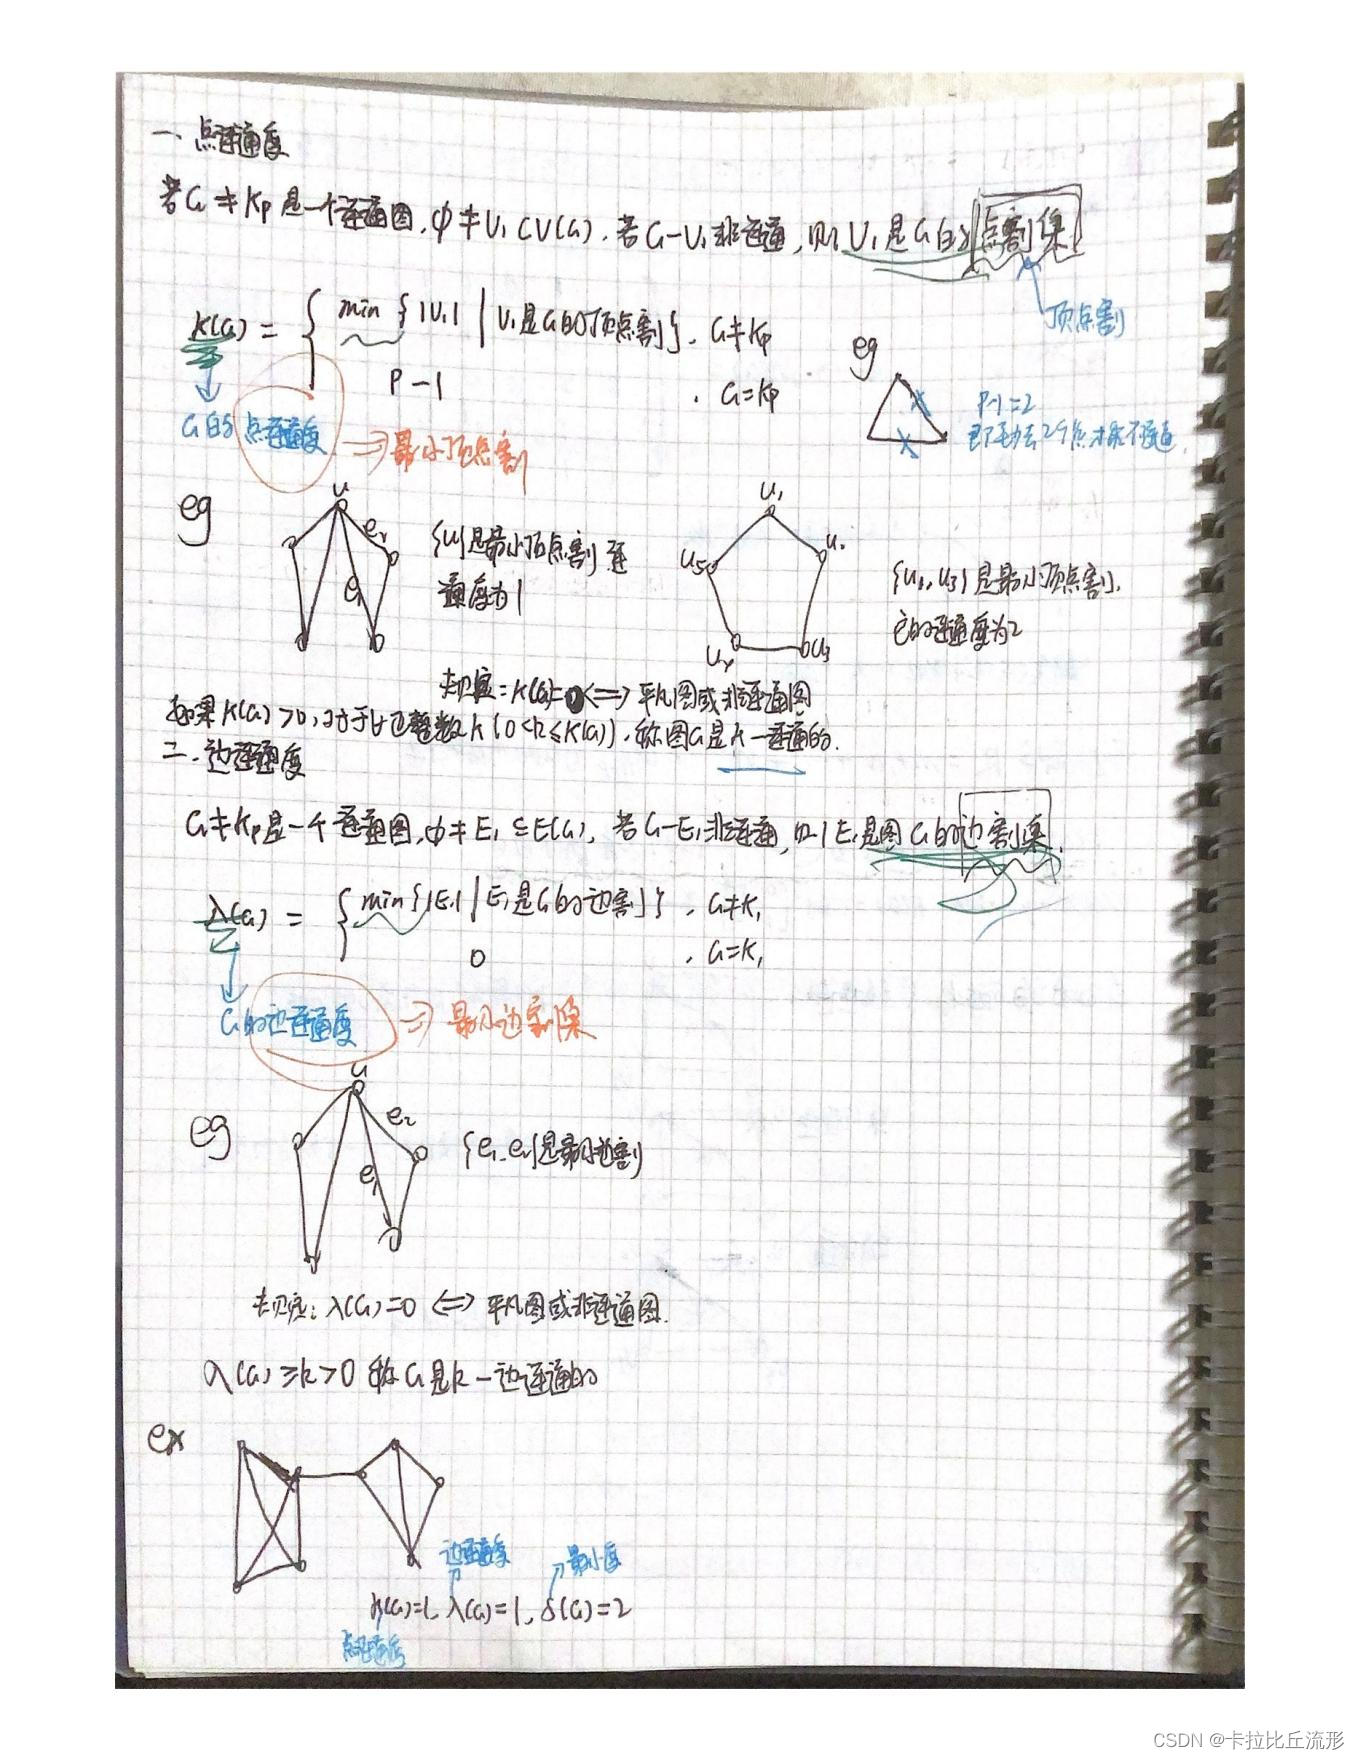 一、点连通度
若G≠Kp是一个连通图,φ≠V₁⊂V(G),若G-V₁非连通,则V₁是G的点割集
顶点割
κ(G) = { min {|V₁| | V₁是G的顶点割}, G≠Kp
p-1 , G=Kp
eg
p-1=2
G的点连通度 ⇒最小顶点割
eg
u
e₂
e₁
{u}是最小顶点割 连
通度为1
u₁
u₅
u₄
u₃
是最小顶点割,
它的连通度为2
κ(G)=0⇔平凡图或非连通图
如果κ(G)>0,对于∀正整数k(0<k≤κ(G)),称图G是k-连通的.
二、边连通度
G≠Kp是一个连通图,φ≠E₁⊆E(G),若G-E₁非连通,则E₁是图G的边割集.
λ(G) = { min{|E₁| | E₁是G的边割}, G≠K₁
0 , G=K₁
G的边连通度 ⇒ 最小边割集
u
eg
e₂
e₁
{e₁,e₂}是最小边割
λ(G)=0 ⇔ 平凡图或非连通图.
λ(G)≥k>0 称G是k-边连通的
ex
边连通度 最小度
κ(G)=1, λ(G)=1, δ(G)=2
点连通度
CSDN @卡拉比丘流形